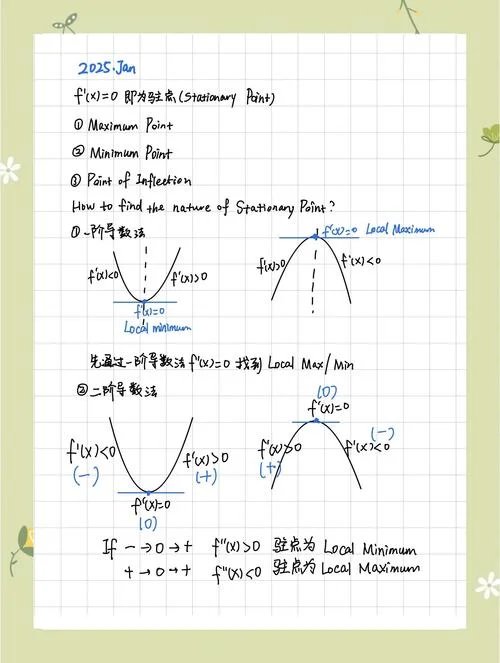 2025.Jan
f'(x)=0 即为驻点(Stationary Point)
① Maximum Point
② Minimum Point
③ Point of Inflection
How to find the nature of Stationary Point?
①一阶导数法
f'(x)=0 Local Maximum
f'(x)<0 f'(x)>0
f(x)>0 f'(x)<0
f'(x)=0
Local minimum
先通过一阶导数法 f'(x)=0 找到 Local Max/Min
②二阶导数法
(0)
f'(x)=0
f'(x)<0
(-)
f'(x)>0
(+)
f'(x)>0
(+)
f'(x)<0
(-)
f'(x)=0
(0)
If - → 0 → + f''(x)>0 驻点为 Local Minimum
+ → 0 → + f''(x)<0 驻点为 Local Maximum